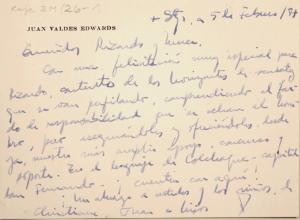 caja 2M/26-1
JUAN VALDES EDWARDS
+ Stg., a 5 de Febrero /8
Queridos Ricardo y
Con una felicitación muy especial para
Ricardo, contento de los horizontes de
que se van perfilando, comprendiendo el far-
do de responsabilidad que se echan al hom-
bro, para asegurándoles y ofreciéndoles, desde
ya, nuestro más amplio apoyo, concurso y
aporte. En el lenguaje de Colchagua, capital
San Fernando, ¡cuenten con aquí!
Un abrazo a ustedes y los niños, de
Christiane, Juan e hijos